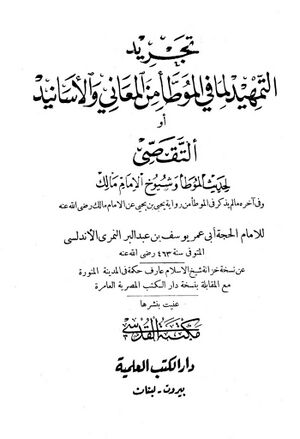 تجريد
التمهيد لما في الموطأ من المعاني والأسانيد
أو
التقصي
لحديث الموطأ وشيوخ الإمام مالك
وفى آخره مالم يذكر فى الموطأ من رواية يحيى بن يحيى عن الامام مالك رضى الله عنه
للامام الحجة أبى عمر يوسف بن عبد البر النمرى الاندلسى
المتوفى سنة ٤٦٣ رضى الله عنه
عن نسخة خزانة شيخ الاسلام عارف حكمة فى المدينة المنورة
مع المقابلة بنسخة دار الكتب المصرية العامرة
عنيت بنشرها
مكتبة القدسي
دار الكتب العلمية
بيروت - لبنان